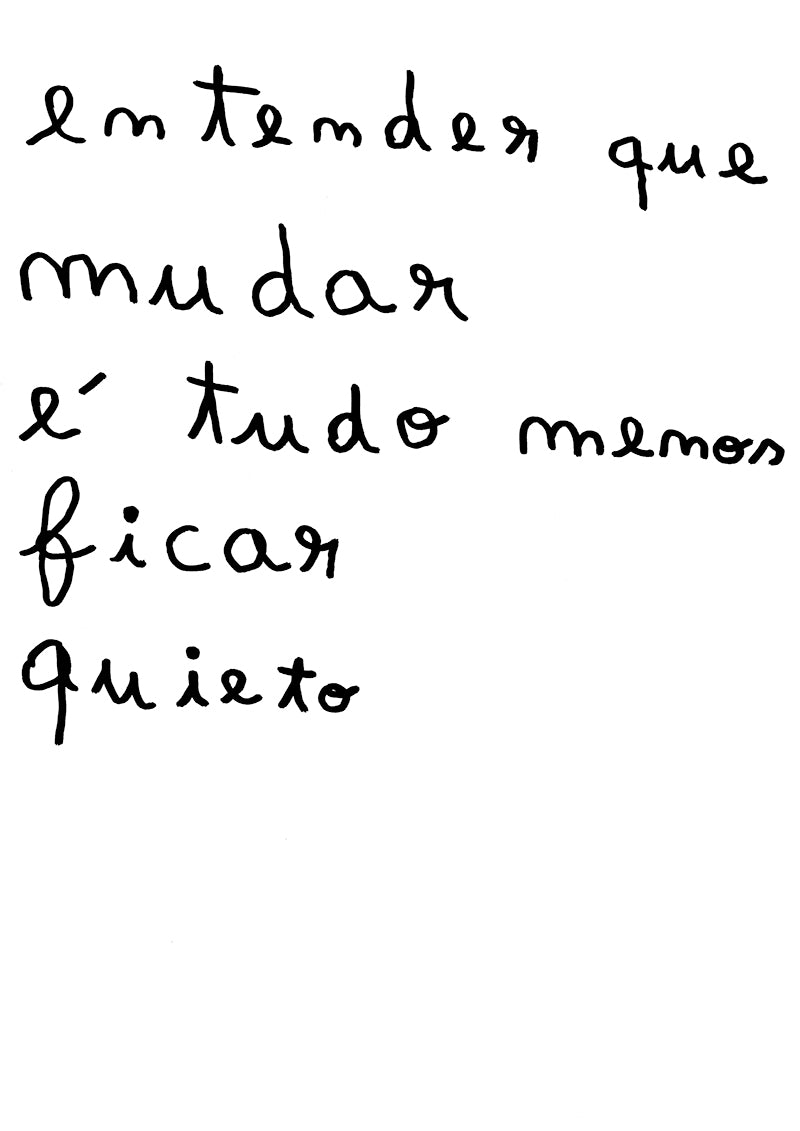 entender que
mudar
é tudo menos
ficar
quieto